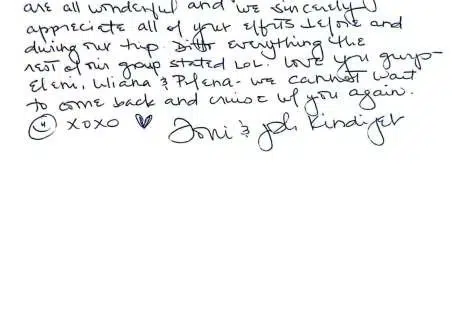 are all wonderful and we sincerely
appreciate all of your efforts before and
during our trip. Ditto everything the
rest of our group stated LOL. Love you guys-
Eleni, Uliana & - we cannot wait
to come back and cruise w/ you again.
xoxo Joni &